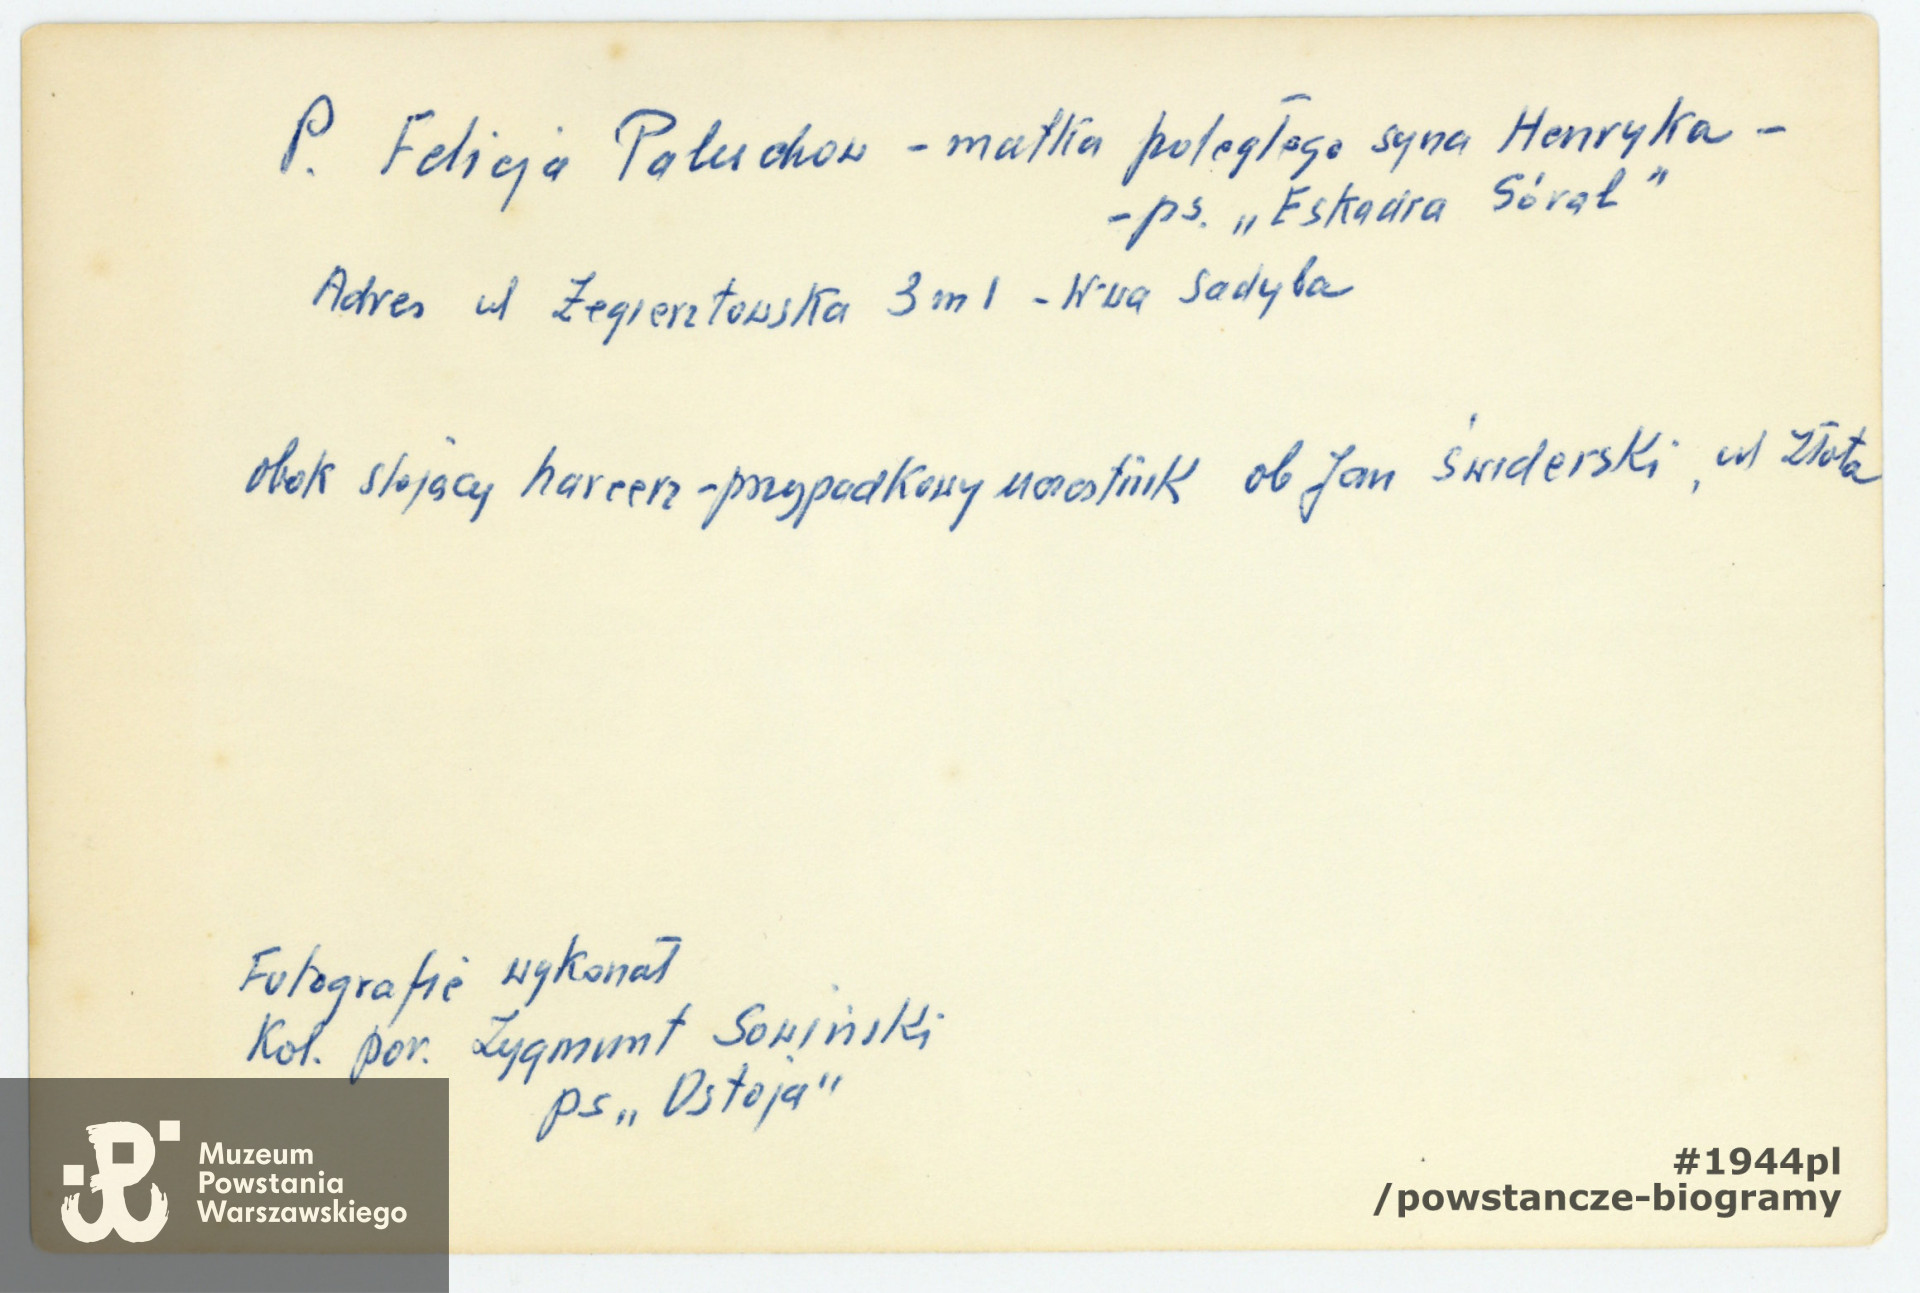 P. Felicja Paluchow - matka poległego syna Henryka -
- ps. „Eskadra Góral"
Adres ul Zegierztowska 3 m 1 - W-wa Sadyba
obok stojący harcerz - przypadkowy uczestnik ob Jan Świderski, ul Złota
Fotografie wykonał
Kol. por. Zygmunt Sowiński
ps „Ostoja"
Muzeum
Powstania
Warszawskiego
#1944pl
/powstancze-biogramy